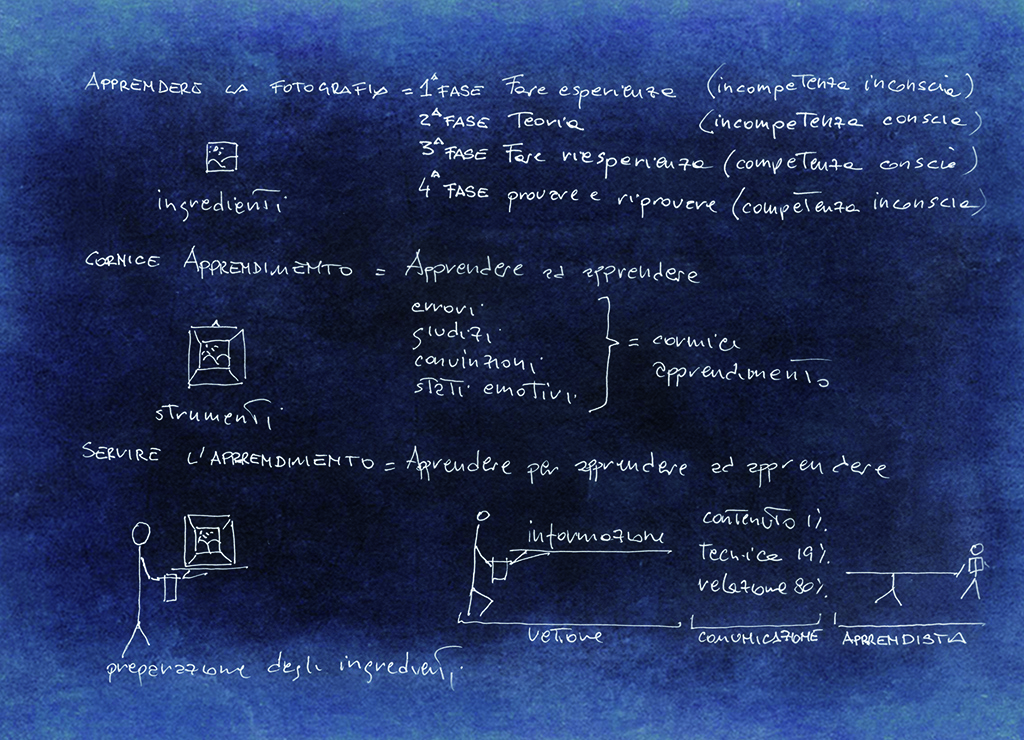 APPRENDERE LA FOTOGRAFIA = 1ª FASE Fare esperienza (incompetenza inconscia)
2ª FASE Teoria (incompetenza conscia)
3ª FASE Fare riesperienza (competenza conscia)
4ª FASE provare e riprovare (competenza inconscia)
ingredienti
CORNICE APPRENDIMENTO = Apprendere ad apprendere
errori
giudizi
convinzioni
stati emotivi
= cornici
apprendimento
strumenti
SERVIRE L'APPRENDIMENTO = Apprendere per apprendere ad apprendere
informazione
contenuto 1%
tecnica 19%
relazione 80%
COMUNICAZIONE
APPRENDISTA
preparazione degli ingredienti